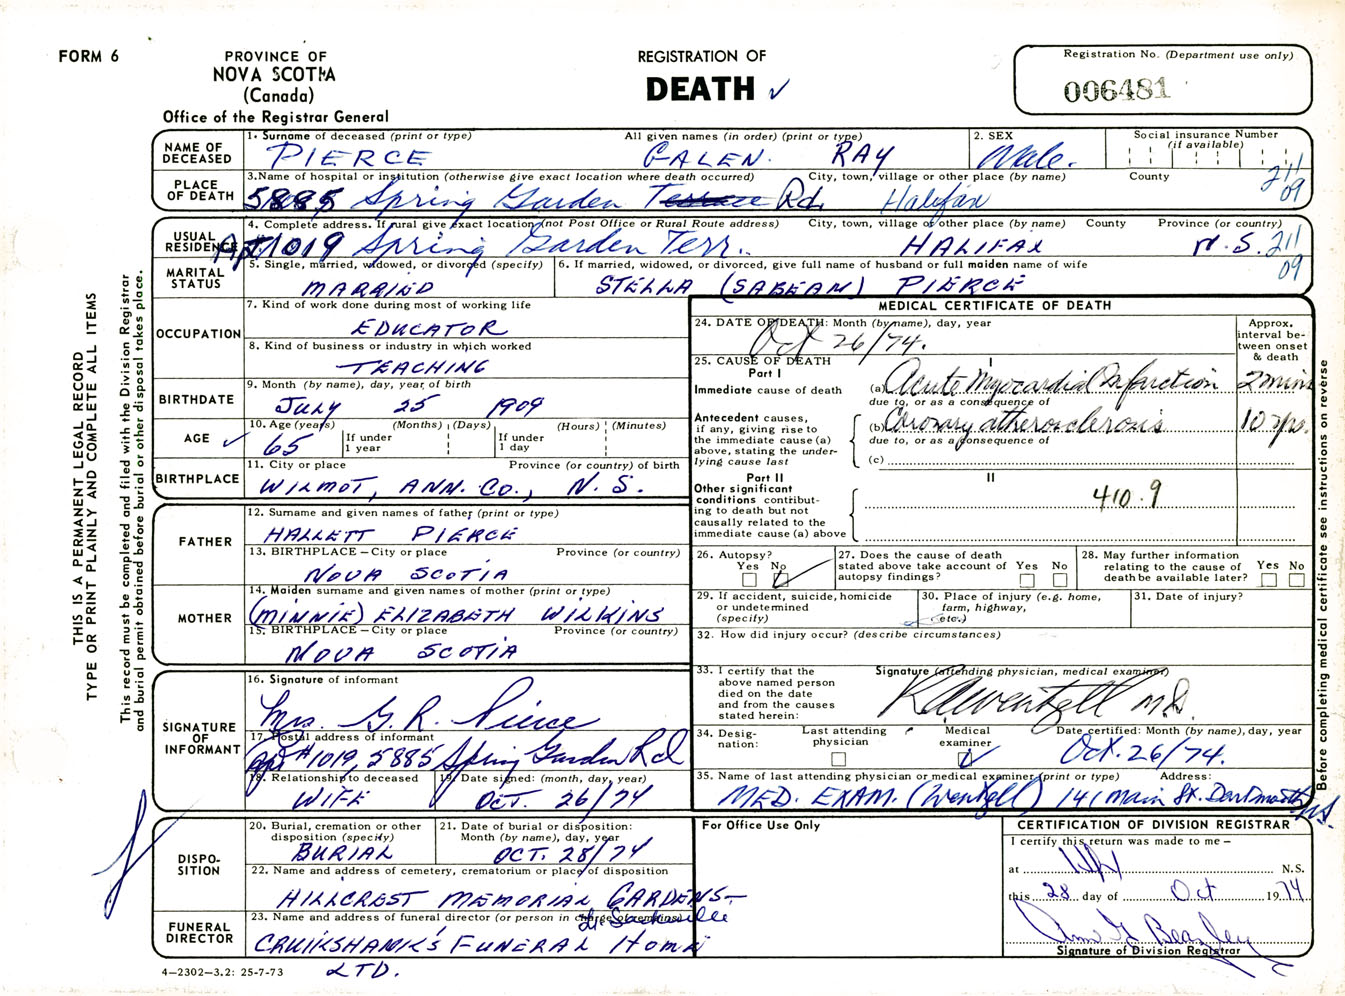 FORM 6
PROVINCE OF
NOVA SCOTIA
(Canada)
Office of the Registrar General
REGISTRATION OF
DEATH ✓
Registration No. (Department use only)
006481
NAME OF DECEASED
1. Surname of deceased (print or type) All given names (in order) (print or type)
PIERCE GALEN RAY
2. SEX
Male.
Social insurance Number
(if available)
PLACE OF DEATH
3. Name of hospital or institution (otherwise give exact location where death occurred) City, town, village or other place (by name) County
5885 Spring Garden Terrace Rd. Halifax
211
09
USUAL RESIDENCE
4. Complete address. If rural give exact location (not Post Office or Rural Route address) City, town, village or other place (by name) County Province (or country)
Apt 1019 Spring Garden Terr. HALIFAX N.S. 211
09
MARITAL STATUS
5. Single, married, widowed, or divorced (specify)
MARRIED
6. If married, widowed, or divorced, give full name of husband or full maiden name of wife
STELLA (SABEAN) PIERCE
OCCUPATION
7. Kind of work done during most of working life
EDUCATOR
8. Kind of business or industry in which worked
TEACHING
BIRTHDATE
9. Month (by name), day, year of birth
JULY 25 1909
AGE ✓
10. Age (years) (Months) (Days) (Hours) (Minutes)
65 If under 1 year If under 1 day
BIRTHPLACE
11. City or place Province (or country) of birth
WILMOT, ANN. CO., N.S.
FATHER
12. Surname and given names of father (print or type)
HALLETT PIERCE
13. BIRTHPLACE – City or place Province (or country)
NOVA SCOTIA
MOTHER
14. Maiden surname and given names of mother (print or type)
(MINNIE) ELIZABETH WILKINS
15. BIRTHPLACE – City or place Province (or country)
NOVA SCOTIA
SIGNATURE OF INFORMANT
16. Signature of informant
Mrs. G. R. Pierce
17. Postal address of informant
apt #1019, 5885 Spring Garden Rd
18. Relationship to deceased
WIFE
19. Date signed: (month, day, year)
OCT. 26/74
DISPOSITION
20. Burial, cremation or other disposition (specify)
BURIAL
21. Date of burial or disposition: Month (by name), day, year
OCT. 28/74
22. Name and address of cemetery, crematorium or place of disposition
HILLCREST MEMORIAL GARDENS-
Sackville
FUNERAL DIRECTOR
23. Name and address of funeral director (or person in charge of remains)
CRUIKSHANK'S FUNERAL HOME
LTD.
4–2302–3.2: 25-7-73
MEDICAL CERTIFICATE OF DEATH
24. DATE OF DEATH: Month (by name), day, year
Oct 26/74.
Approx. interval between onset & death
25. CAUSE OF DEATH
Part I
I
Immediate cause of death
(a) Acute Myocardial Infarction 2 mins
due to, or as a consequence of
Antecedent causes, if any, giving rise to the immediate cause (a) above, stating the underlying cause last
(b) Coronary atherosclerosis 10 yrs.
due to, or as a consequence of
(c)
Part II
II
Other significant conditions contributing to death but not causally related to the immediate cause (a) above
410.9
26. Autopsy?
Yes No
27. Does the cause of death stated above take account of autopsy findings?
Yes No
28. May further information relating to the cause of death be available later?
Yes No
29. If accident, suicide, homicide or undetermined (specify)
30. Place of injury (e.g. home, farm, highway, etc.)
31. Date of injury?
32. How did injury occur? (describe circumstances)
33. I certify that the above named person died on the date and from the causes stated herein:
Signature (attending physician, medical examiner)
Wentzell M.D.
34. Designation:
Last attending physician
Medical examiner
Date certified: Month (by name), day, year
Oct. 26/74.
35. Name of last attending physician or medical examiner (print or type) Address:
MED. EXAM. (Wentzell) 141 Main St. Dartmouth N.S.
For Office Use Only
CERTIFICATION OF DIVISION REGISTRAR
I certify this return was made to me –
at Hfx N.S.
this 28 day of Oct 1974
Signature of Division Registrar
THIS IS A PERMANENT LEGAL RECORD
TYPE OR PRINT PLAINLY AND COMPLETE ALL ITEMS
This record must be completed and filed with the Division Registrar
and burial permit obtained before burial or other disposal takes place.
Before completing medical certificate see instructions on reverse